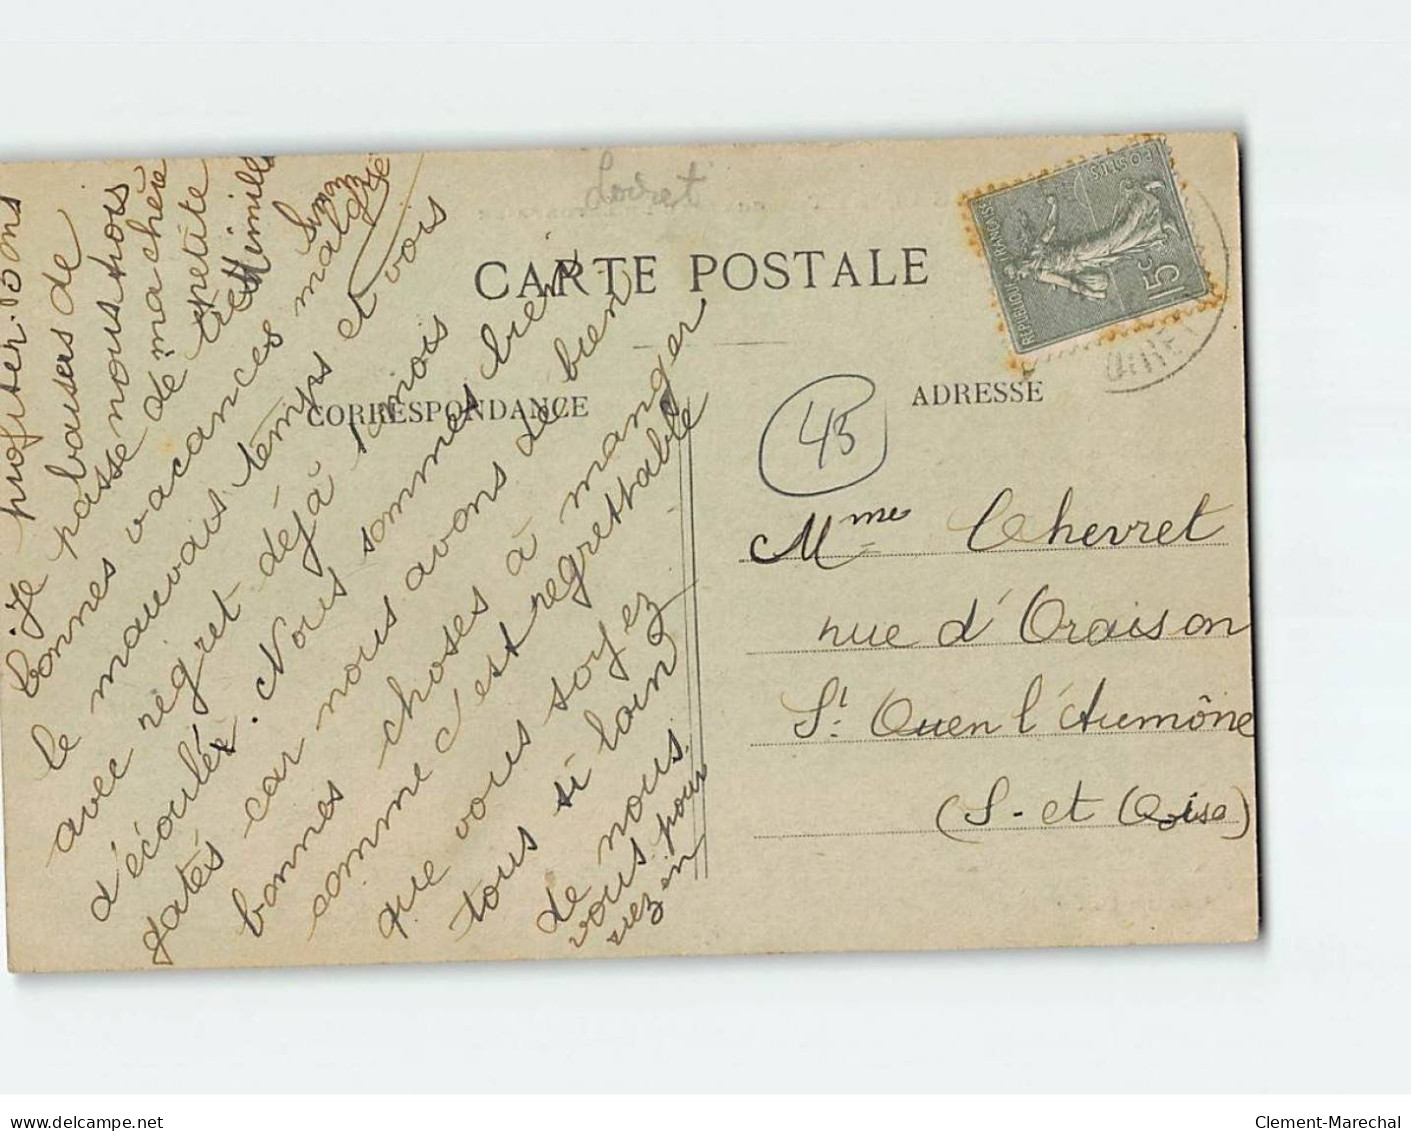 Loiret
CARTE POSTALE
CORRESPONDANCE
ADRESSE
POSTES
REPUBLIQUE FRANÇAISE
15c
45
Mme Chevret
rue d'Oraison
St. Ouen l'Aumône
(S.-et Oise)
Je passe de très
bonnes vacances malgré
le mauvais temps et vois
avec regret déjà 1 mois
d'écoulé. Nous sommes bien
gatés car nous avons de bien
bonnes choses à manger
comme c'est regrettable
que vous soyez
tous si loin
de nous.
vous pour
riez en
profiter. Bons
baisers de
nous trois
ma chère
petite
Mimille
Simone
www.delcampe.net
Clement-Marechal